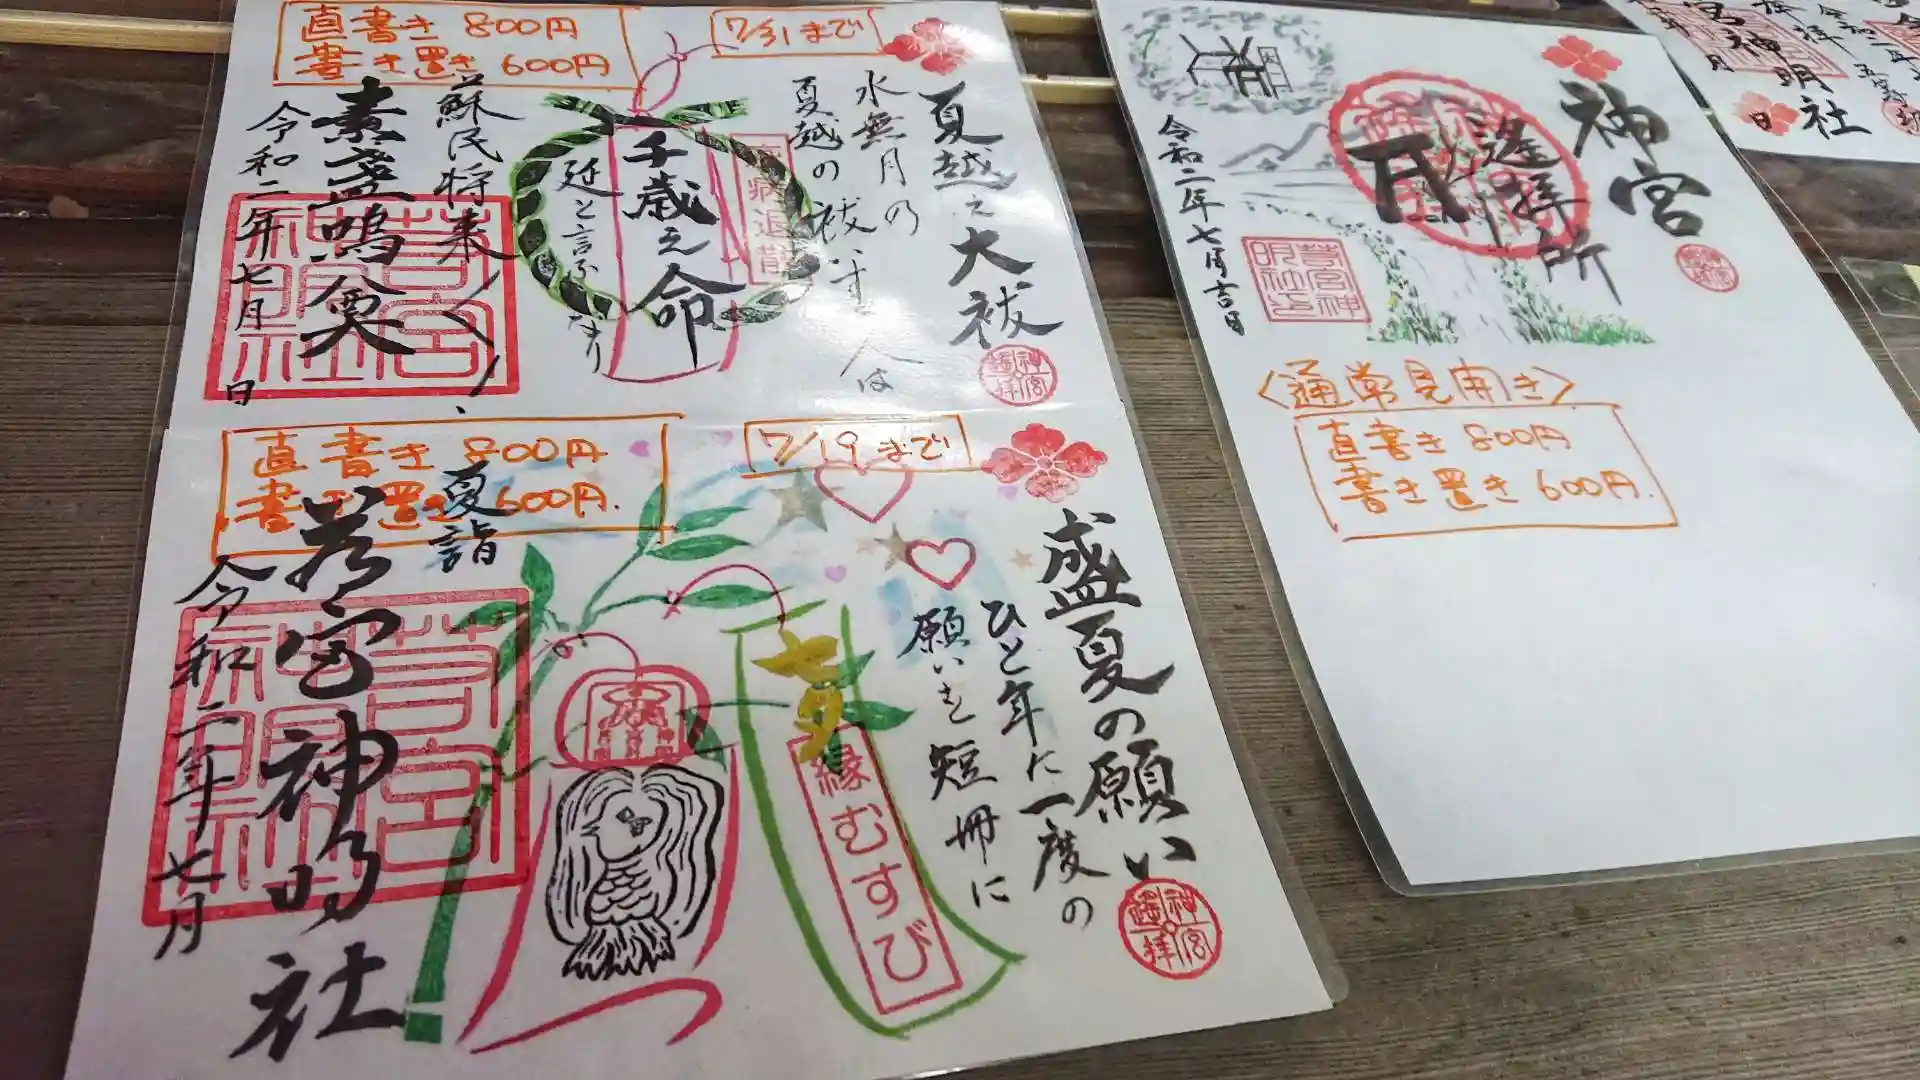 直書き 800円
書き置き 600円
7/31まで
夏越之大祓
水無月の
夏越の祓いする人は
千歳之命
延と言ふなり
蘇民将来
素盞嗚尊
令和二年七月 日
神宮
遥拝
直書き 800円
書き置き 600円.
7/19まで
盛夏の願い
ひと年に一度の
願いを短冊に
縁むすび
夏詣
若宮神明社
令和二年七月
神宮
遥拝
神宮
遥拝所
令和二年七月吉日
〈通常見開き〉
直書き 800円
書き置き 600円.